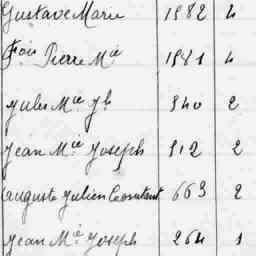 Gustave Marie 1982 4
Fçois Pierre Mie 1981 4
Jules Mie Jh 340 2
Jean Mie Joseph 312 2
Auguste Julien Constant 663 2
Jean Mie Joseph 264 1